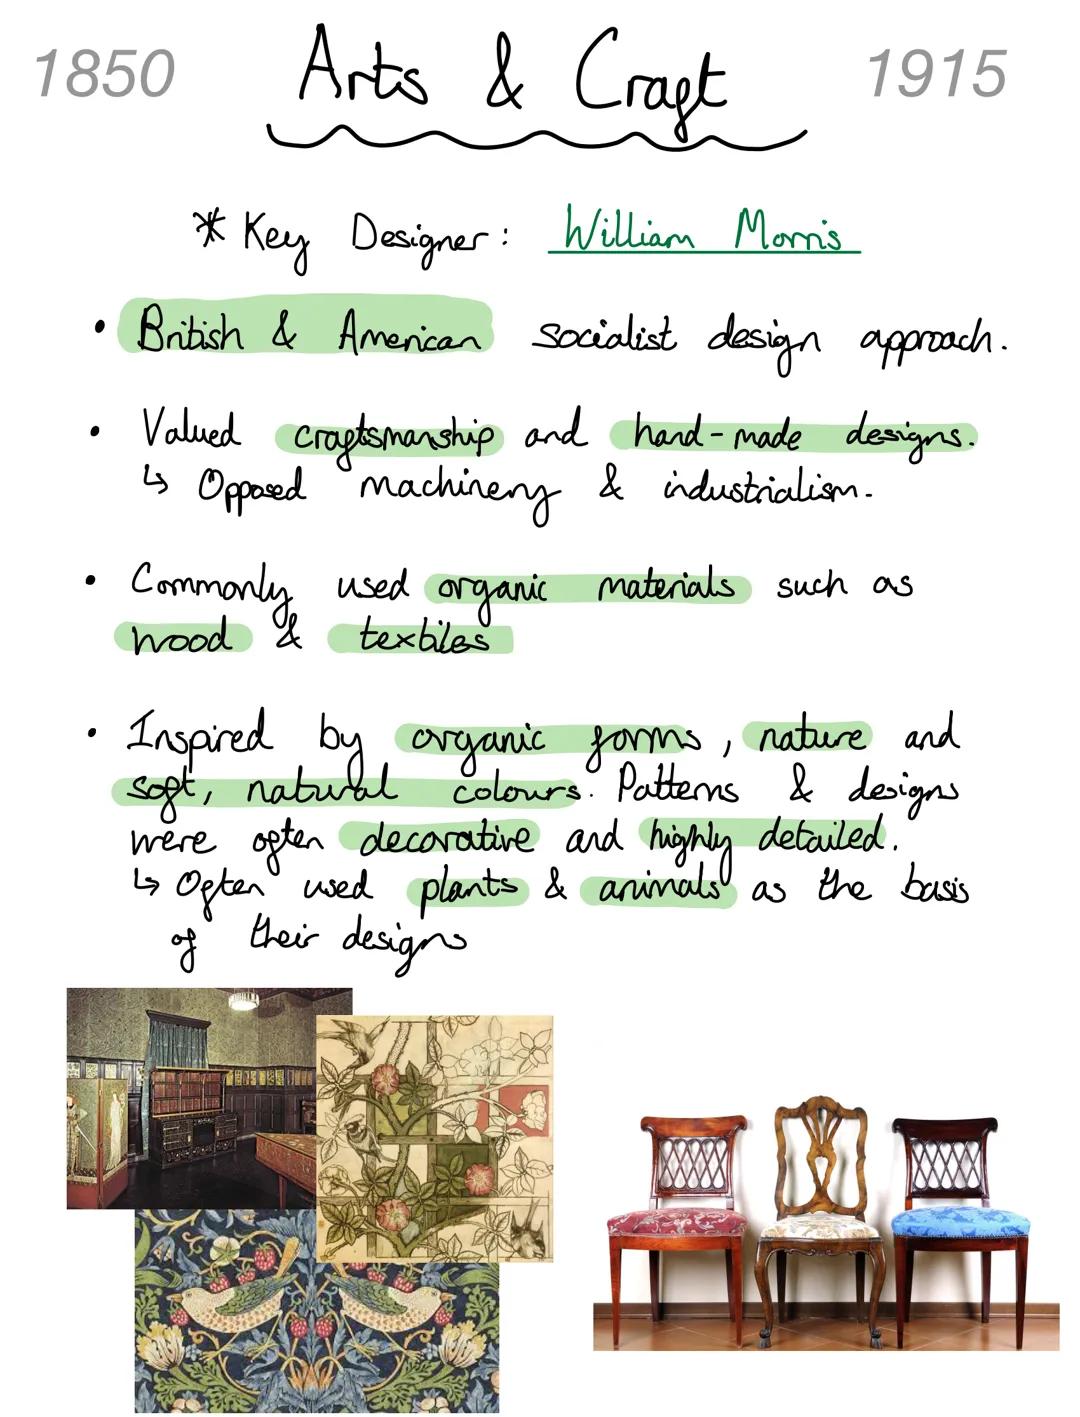 1850 Arts & Craft 1915
* Key Designer: William Morris
• British & American socialist design approach.
• Valued craftsmanship and hand-made designs.
↳ Opposed machinery & industrialism.
• Commonly used organic materials such as
wood & textiles
• Inspired by organic forms, nature and
soft, natural colours. Patterns & designs
were often decorative and highly detailed.
↳ Often used plants & animals as the basis
of their designs